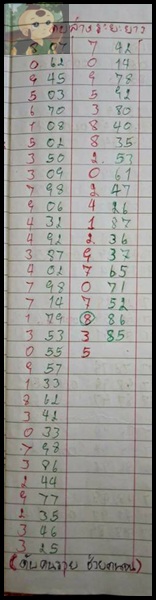 ล่างระยะยาว
8 87 7 92
0 62 0 14
9 45 9 78
5 03 5 92
6 70 3 80
1 08 8 40
5 02 8 35
3 50 2 53
3 09 0 61
7 98 2 47
9 06 4 26
4 32 1 87
4 92 2 36
3 87 9 37
4 02 7 65
7 98 0 71
7 14 7 52
1 79 8 86
3 53 3 85
0 55 5
9 57
1 33
8 62
3 42
0 33
7 98
3 86
2 44
9 77
2 35
3 46
3 25